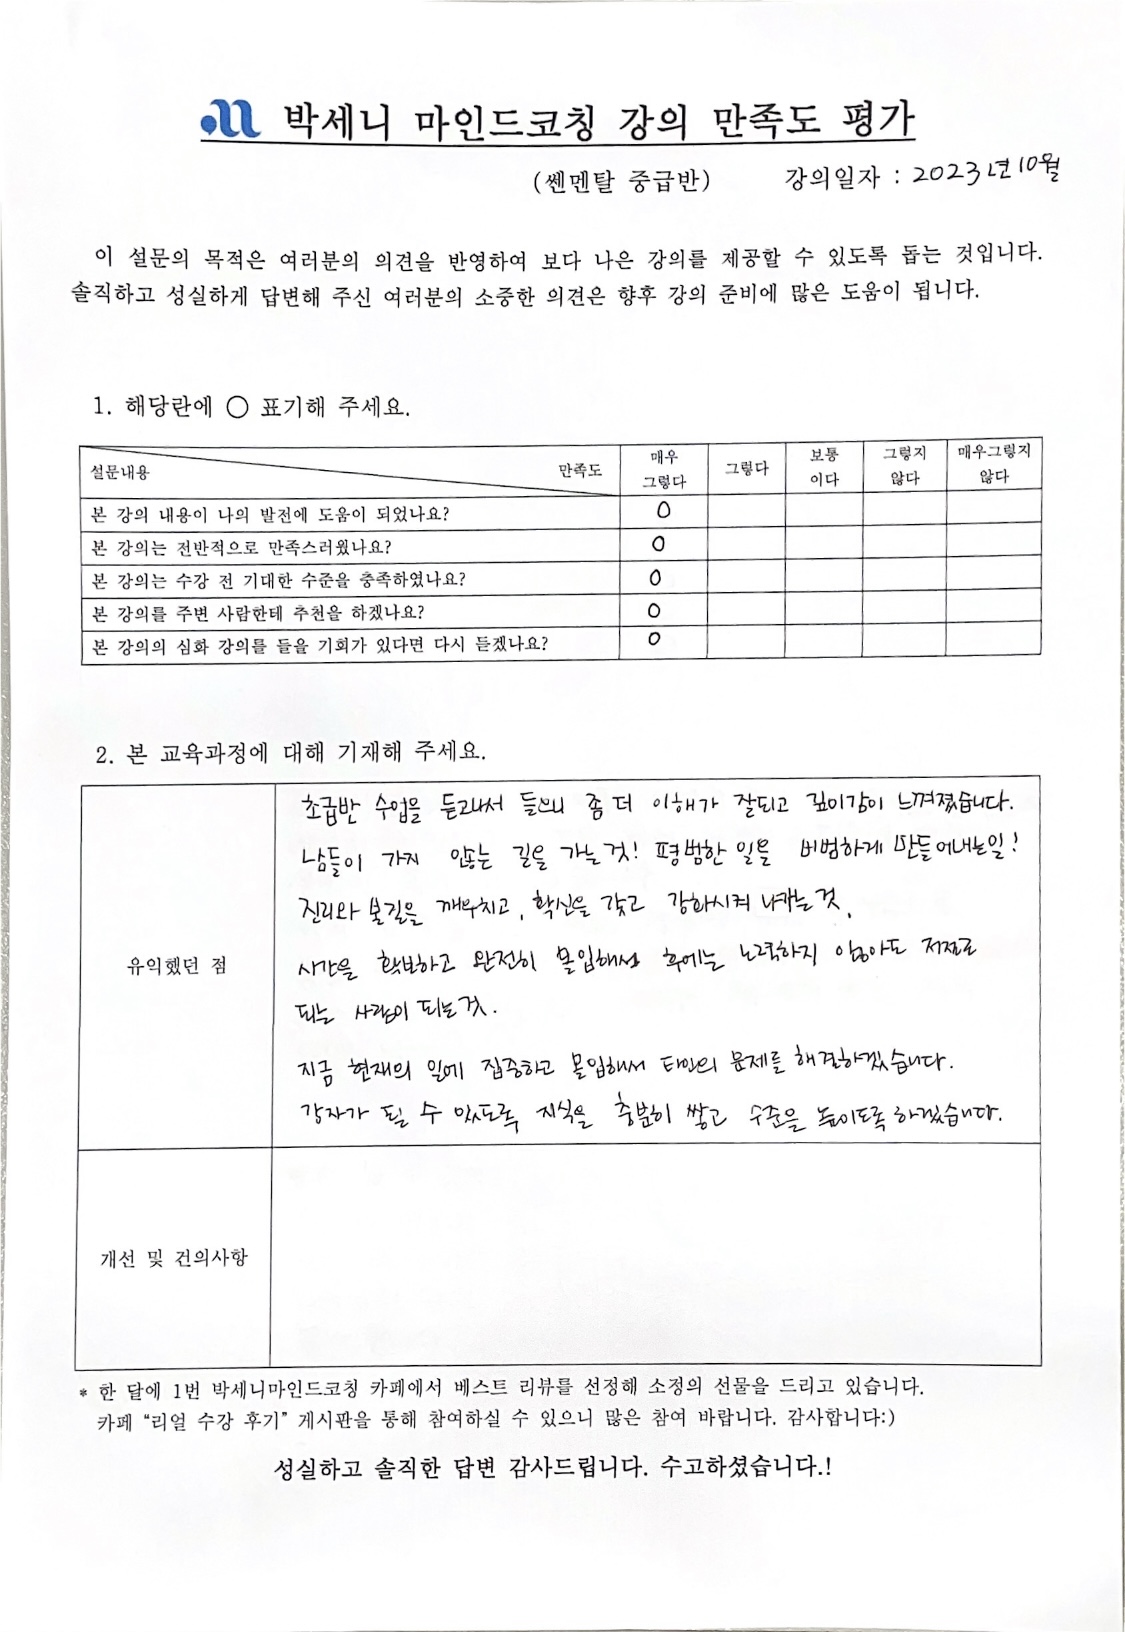 박세니 마인드코칭 강의 만족도 평가
(쎈멘탈 중급반) 강의일자 : 2023년 10월
이 설문의 목적은 여러분의 의견을 반영하여 보다 나은 강의를 제공할 수 있도록 돕는 것입니다.
솔직하고 성실하게 답변해 주신 여러분의 소중한 의견은 향후 강의 준비에 많은 도움이 됩니다.
1. 해당란에 ○ 표기해 주세요.
설문내용 만족도 매우 그렇다 그렇다 보통 이다 그렇지 않다 매우그렇지 않다
본 강의 내용이 나의 발전에 도움이 되었나요? ○
본 강의는 전반적으로 만족스러웠나요? ○
본 강의는 수강 전 기대한 수준을 충족하였나요? ○
본 강의를 주변 사람한테 추천을 하겠나요? ○
본 강의의 심화 강의를 들을 기회가 있다면 다시 듣겠나요? ○
2. 본 교육과정에 대해 기재해 주세요.
유익했던 점
초급반 수업을 듣고나서 들으니 좀 더 이해가 잘되고 깊이감이 느껴졌습니다.
남들이 가지 않는 길을 가는 것! 평범한 일을 비범하게 만들어내는일!
진리와 본질을 깨우치고, 확신을 갖고 강화시켜 나가는 것.
시간을 확보하고 완전히 몰입해서 후에는 노력하지 않아도 저절로
되는 사람이 되는 것.
지금 현재의 일에 집중하고 몰입해서 타인의 문제를 해결하겠습니다.
강자가 될 수 있도록 지식을 충분히 쌓고 수준을 높이도록 하겠습니다.
개선 및 건의사항
* 한 달에 1번 박세니마인드코칭 카페에서 베스트 리뷰를 선정해 소정의 선물을 드리고 있습니다.
카페 “리얼 수강 후기” 게시판을 통해 참여하실 수 있으니 많은 참여 바랍니다. 감사합니다:)
성실하고 솔직한 답변 감사드립니다. 수고하셨습니다.!